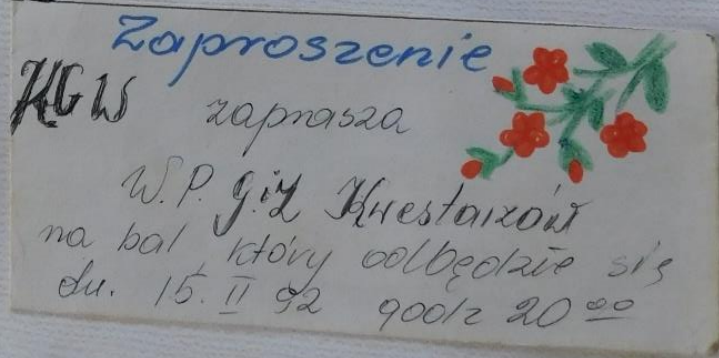 Zaproszenie
KGW zaprasza
W.P. G.iZ Kwestarzów
na bal, który odbędzie się
dn. 15. II 92 godz 20 00